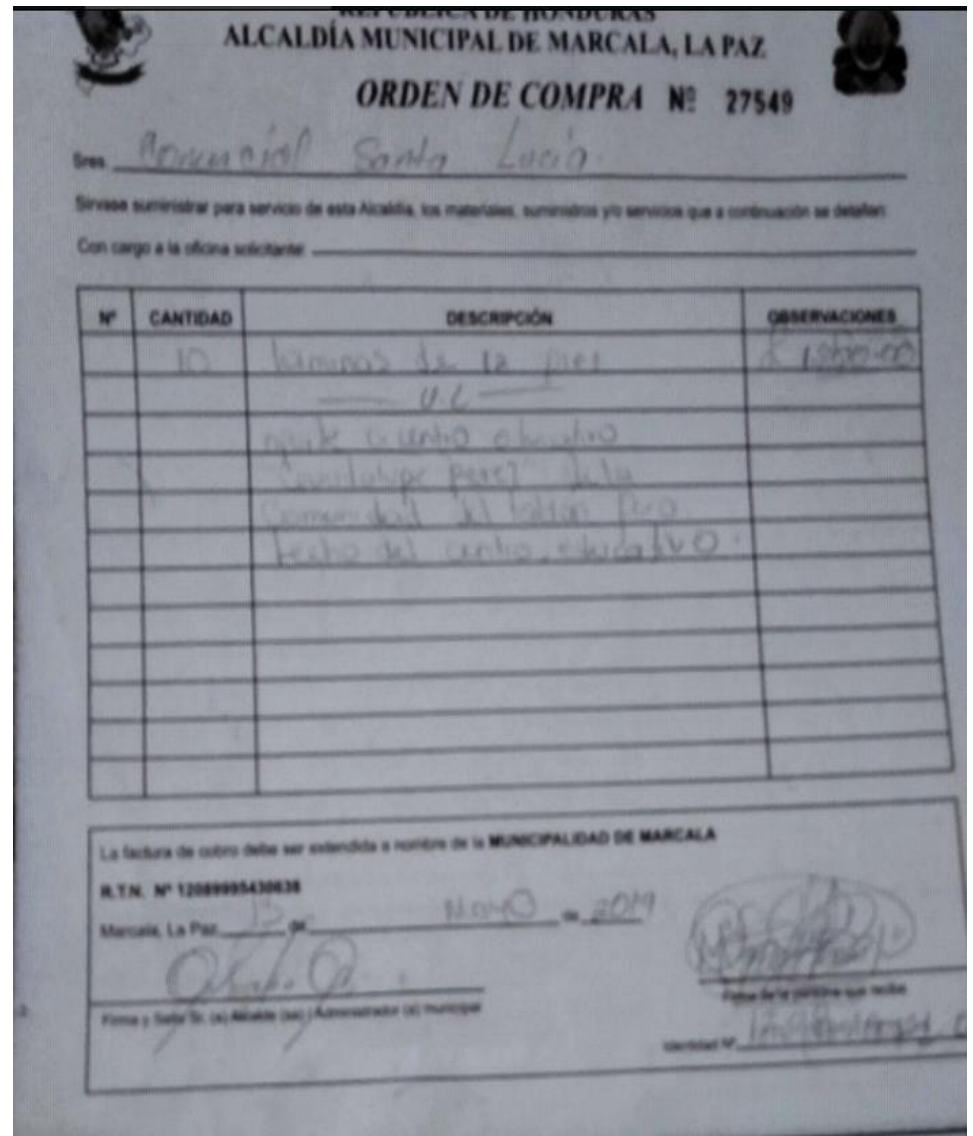 REPUBLICA DE HONDURAS
ALCALDÍA MUNICIPAL DE MARCALA, LA PAZ
ORDEN DE COMPRA Nº 27549
Sres. Comercial Santa Lucia.
Sirvase suministrar para servicio de esta Alcaldía, los materiales, suministros y/o servicios que a continuación se detallen:
Con cargo a la oficina solicitante:
Nº CANTIDAD DESCRIPCIÓN OBSERVACIONES
10 laminas de 12 pies
U.L
centro educativo
Perez de la
Comunidad del
techo del centro educativo.
La factura de cobro debe ser extendida a nombre de la MUNICIPALIDAD DE MARCALA
R.T.N. Nº 12089995430638
Marcala, La Paz 13 de Mayo de 2019
Firma y Sello Sr. (a) Alcalde (sa) / Administrador (a) municipal
Firma de la persona que recibe
Identidad Nº